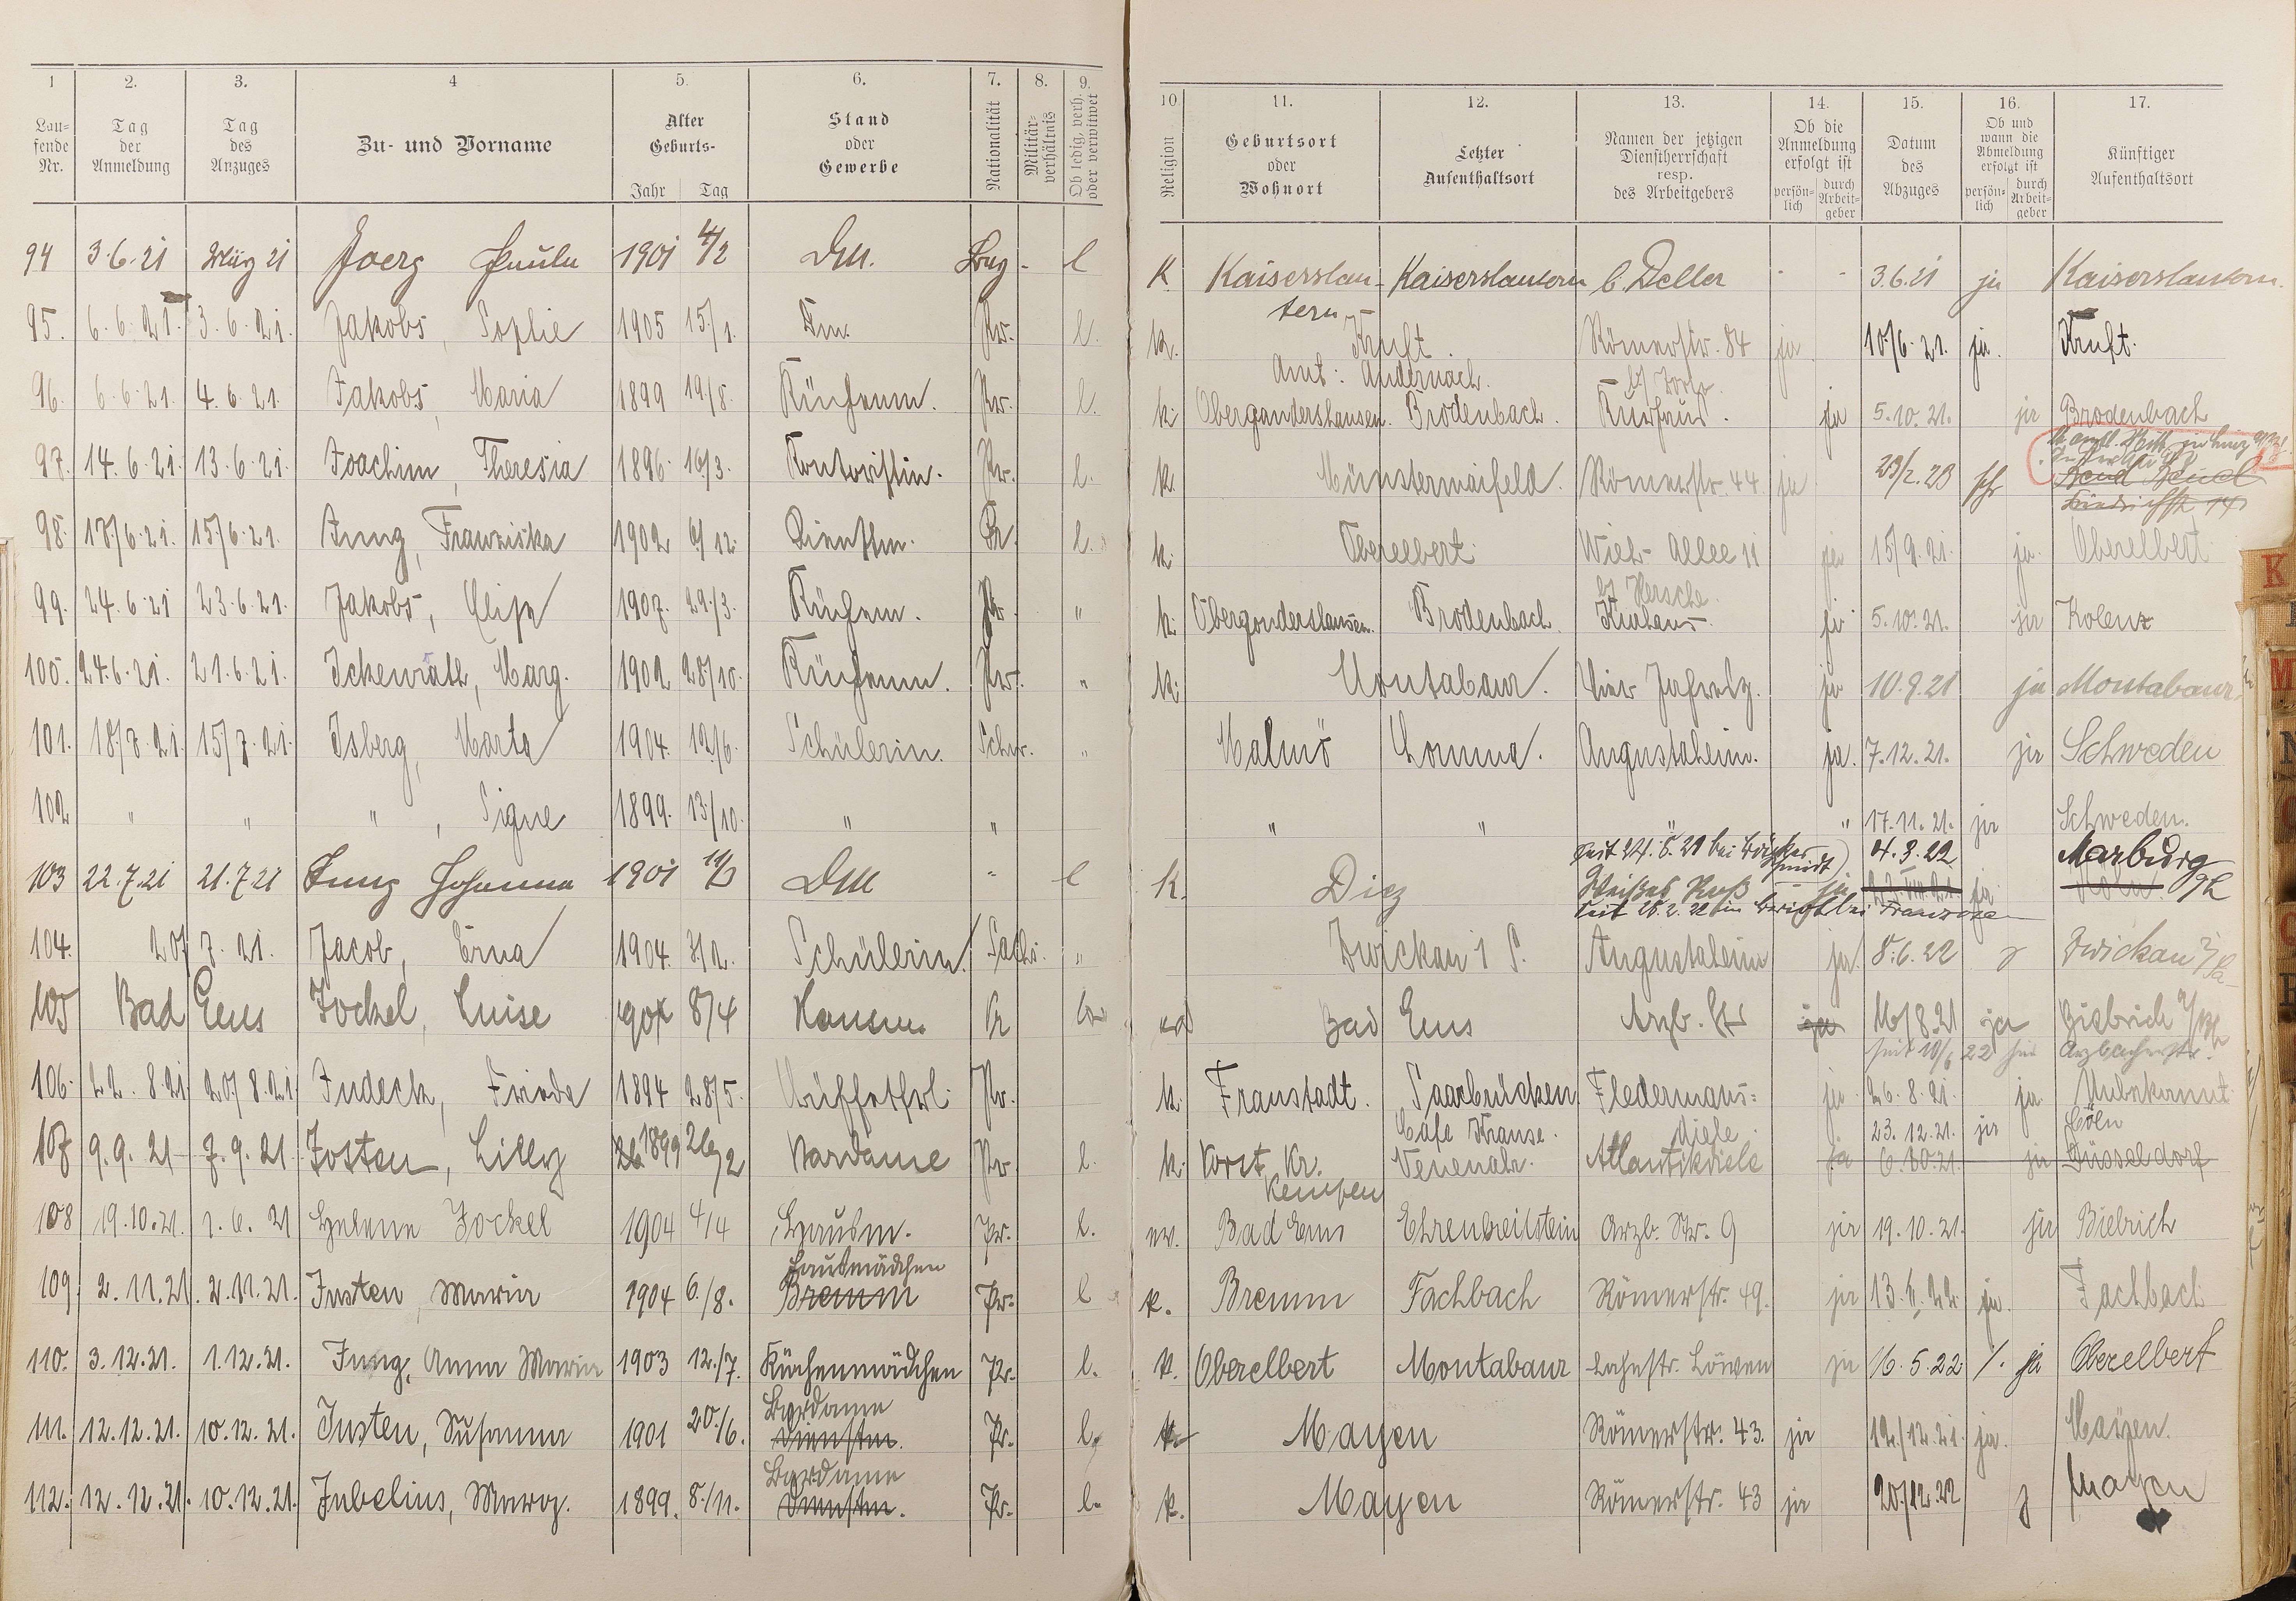 1 2. 3. 4 5. 6. 7. 8. 9. 10. 11. 12. 13. 14. 15. 16. 17.
Lau-
fende
Nr.
Tag
der
Anmeldung
Tag
des
Anzuges
Zu- und Vorname
Alter
Geburts-
Jahr Tag
Stand
oder
Gewerbe
Nationalität
Militär-
verhältnis
Ob ledig, verh.
oder verwitwet
Religion
Geburtsort
oder
Wohnort
Letzter
Aufenthaltsort
Namen der jetzigen
Dienstherrschaft
resp.
des Arbeitgebers
Ob die
Anmeldung
erfolgt ist
persön-
lich
durch
Arbeit-
geber
Datum
des
Abzuges
Ob und
wann die
Abmeldung
erfolgt ist
persön-
lich
durch
Arbeit-
geber
Künftiger
Aufenthaltsort
94 3.6.21 März 21 Joerg Paula 1901 4/2 DM. Bay - l K. Kaiserslau- Kaiserslautern C. Deller - - 3.6.21 ja Kaiserslautern.
tern
95. 6.6.21. 3.6.21. Jakobs, Sophie 1905 15/1. Dm. Pr. l. k. Kruft. Römerstr. 84 ja 10/6.21. ja. Kruft.
Amt: Andernach.
96. 6.6.21. 4.6.21. Jakobs, Maria 1899 19/8. Küchenm. Pr. l. k. Obergondershausen. Brodenbach. Kurhaus. ja 5.10.21. ja Brodenbach
97. 14.6.21. 13.6.21. Joachim, Theresia 1896 16/3. Kontoristin. Pr. l. k. Münstermaifeld. Römerstr. 44 ja 23/2.23
Friedrichstr. 14
98. 17/6.21. 15/6.21. Jung, Franziska 1902 6/12. Dienstm. Pr. l. k. Oberelbert. Wiels-Allee 11 ja 15/9.21. ja. Oberelbert
99. 24.6.21 23.6.21. Jakobs, Elise 1907. 29./3. Küchenm. Pr. " k. Obergondershausen. Brodenbach. Kurhaus. ja 5.10.21. ja Kolenz
100. 24.6.21. 21.6.21. Ickenrath, Marg. 1902 28/10. Küchenm. Pr. " k. Montabaur. Vier Jahresz. ja 10.9.21 ja Montabaur
101. 18/7.21. 15/7.21. Isberg, Marta 1904. 12/6. Schülerin. Schw. " Malmö Lomma. Augustaheim. ja. 7.12.21. ja Schweden
102 " " ", Signe 1899. 13/10. " " " " " " 17.11.21. ja Schweden.
103 22.7.21 21.7.21 Jung Johanna 1901 DM " l K. Diez Weißes Roß ja 4.3.22 ja Marburg
104. 20/7.21. Jacob, Erna 1904. 7/2. Schülerin. Sachs. " Zwickau i S. Augustaheim ja. 8.6.22 Zwickau i/Sa
105 Bad Ems Jockel, Luise 1904 8/4 Hausm. Pr Bad Ems Arzb. Str ja 16/8.21 ja Biebrich a/Rh
seit 10/6 22 hier Arzbacherstr.
106. 22.8.21 20/8.21 Judeck, Frieda 1894 28/5. Büffetfrl. Pr. k. Fraustadt. Saarbrücken Fledermaus= ja 26.8.21. ja. Unbekannt.
Cafe Krause. diele. 23.12.21. ja Cöln
107 9.9.21 7.9.21. Josten, Lilly 1899 26/2 Bardame Pr l. k. Vorst Kr. Neuenahr. Atlantikdiele ja 6.10.21. ja Düsseldorf
Kempen
108 19.10.21. 1.6.21 Helene Jockel 1904 4/4 Hausm. Pr. l. ev. Bad Ems Ehrenbreitstein Arzb. Str. 9 ja 19.10.21. ja Biebrich
Hausmädchen
109 2.11.21. 2.11.21. Justen, Maria 1904 6./8. Bremm Pr. l k. Bremm Fachbach Römerstr. 49. ja 13.2.22. ja. Fachbach
110. 3.12.21. 1.12.21. Jung, Anna Maria 1903 12./7. Küchenmädchen Pr. l. k. Oberelbert Montabaur Lahnstr. Löwen ja 16.5.22 /. ja Oberelbert
Bardame
111. 12.12.21. 10.12.21. Justen, Susanna 1901 20./6. Dienstm. Pr. l. k. Mayen Römerstr. 43. ja 12./12.21. ja. Mayen.
Bardame
112. 12.12.21. 10.12.21. Jubelius, Marg. 1899. 8./11. Dienstm. Pr. l. k. Mayen Römerstr. 43 ja 20/12.22 j Mayen